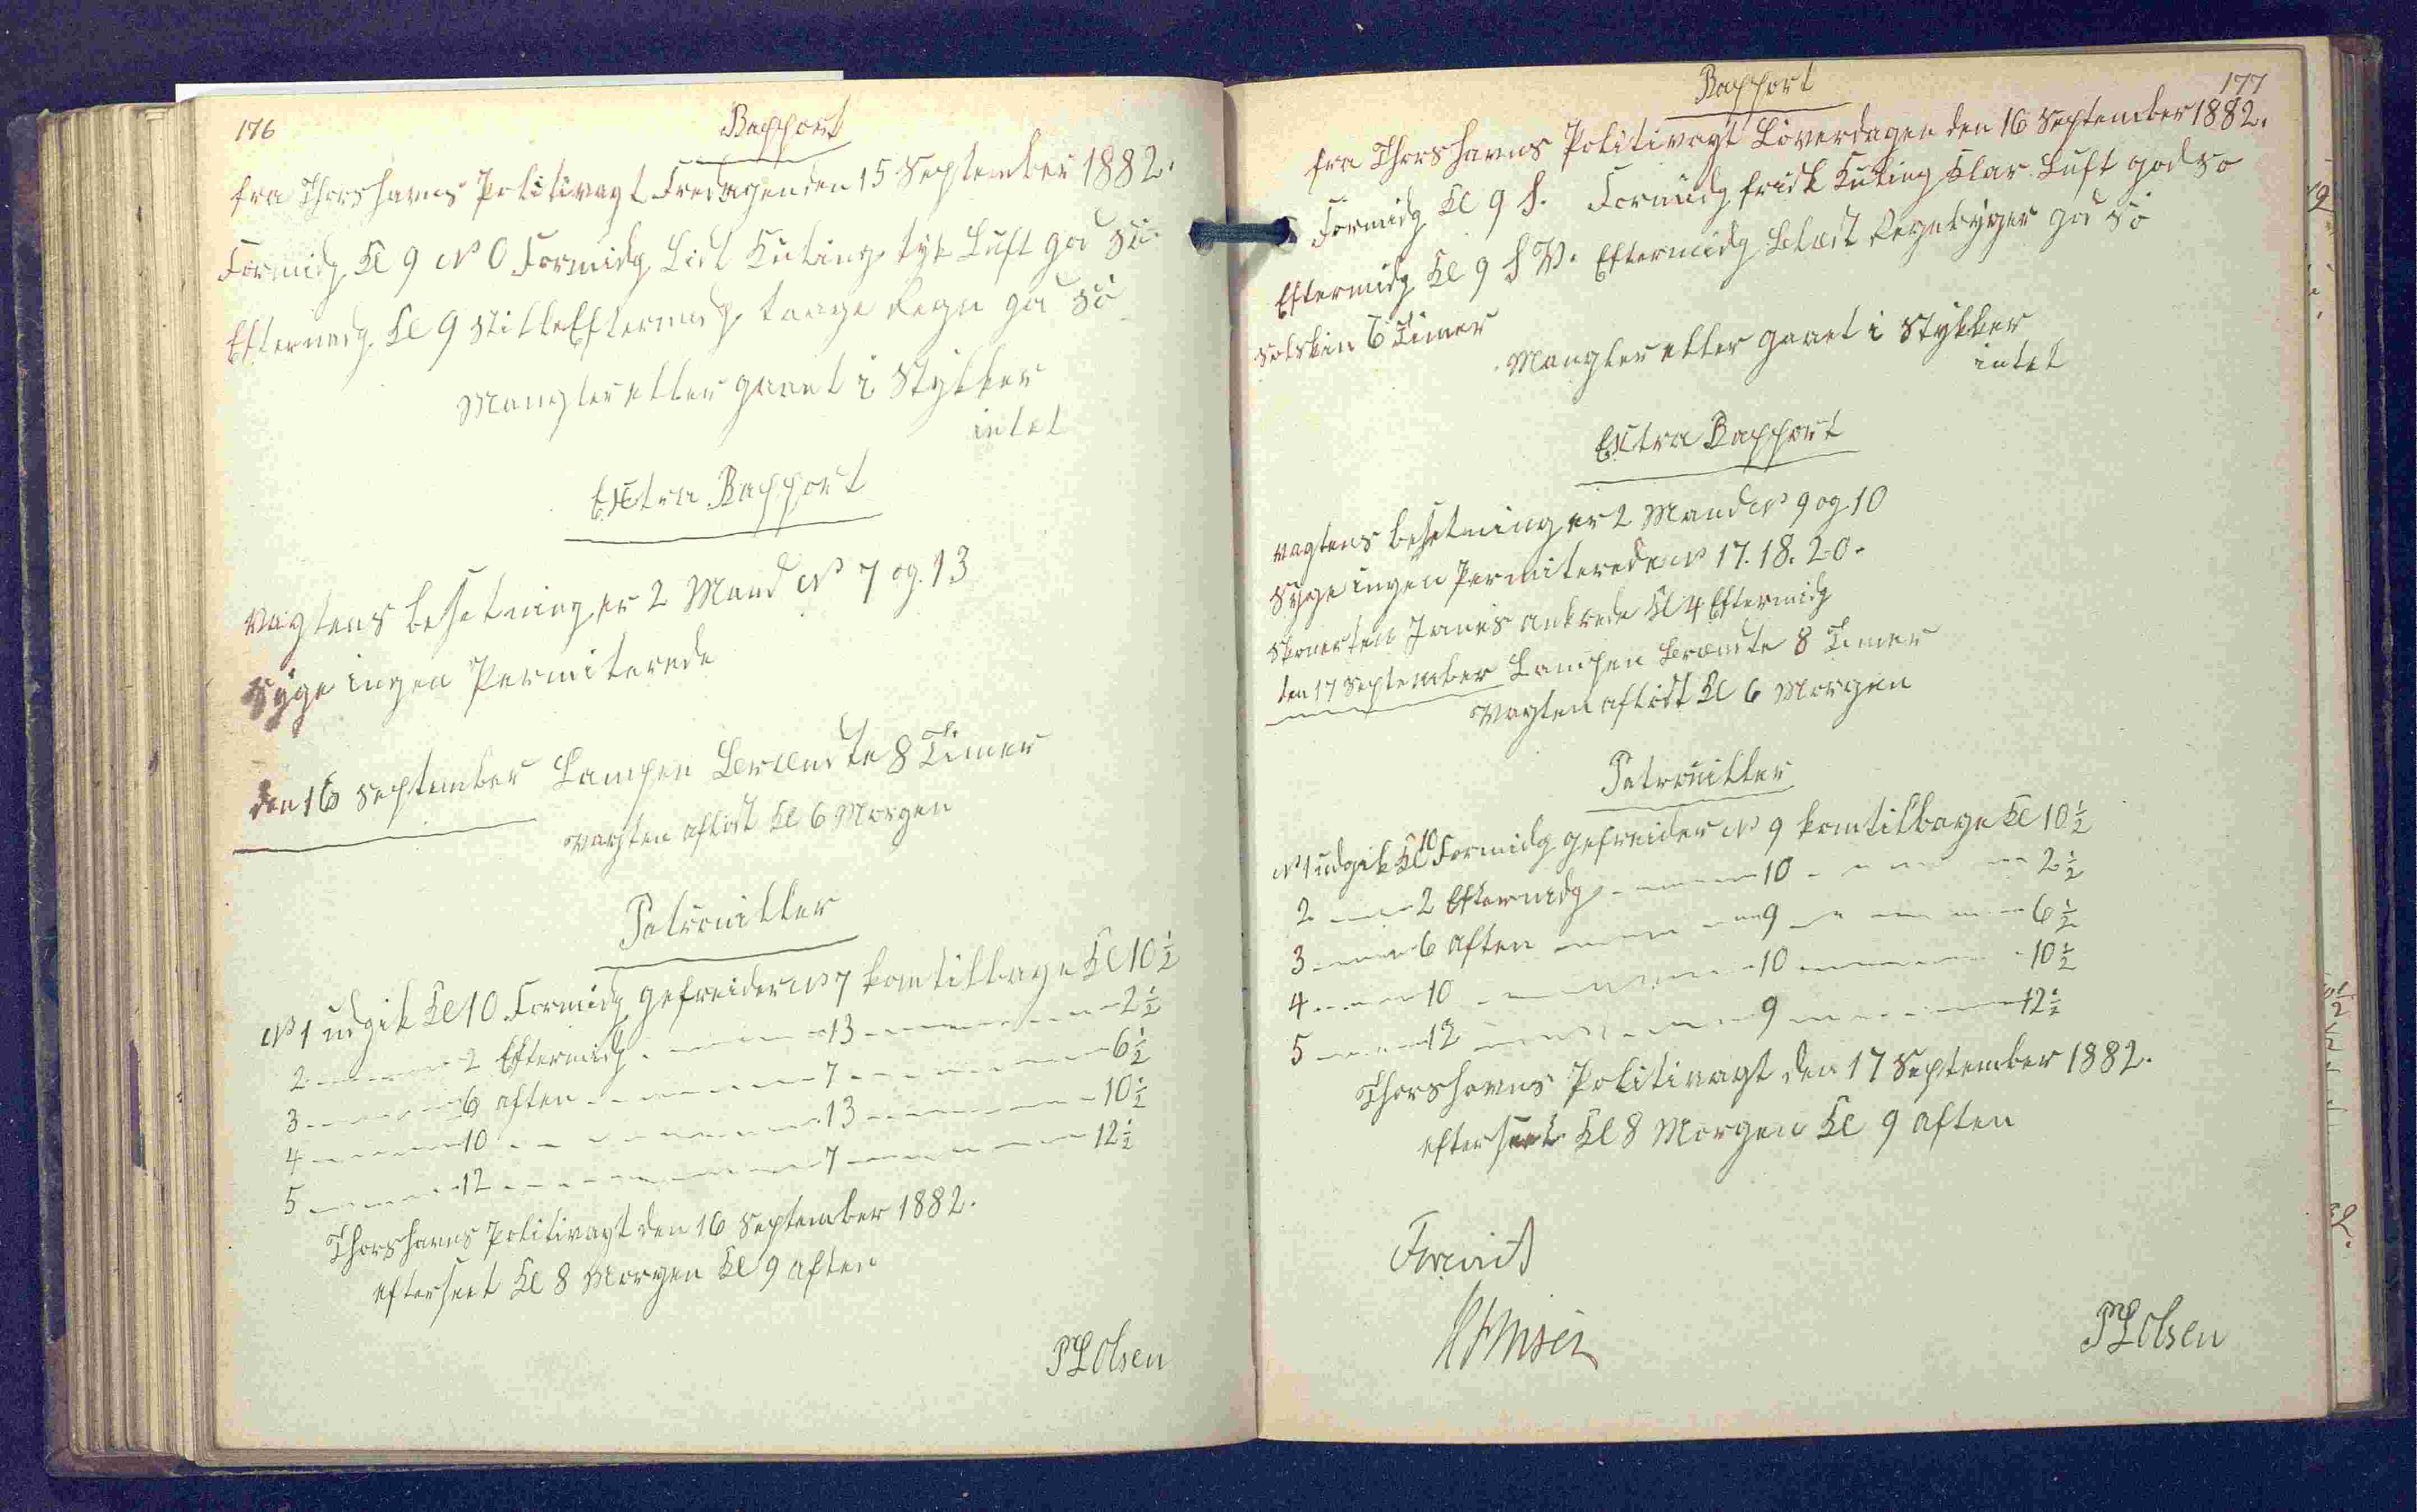 176
Rapport
fra Thorshavns Politivagt Fredagen den 15 September 1882.
Formidg Kl 9 N O Formidg Lidt Kuling tyk Luft god Sö
Eftermidg Kl 9 Stille Eftermidg taage Regn god Sö
Mangler eller gaaet i Stykker
intet
Extra Rapport
Vagtens besetning er 2 Mand No 7 og 13
Syge ingen Permiterede
den 16 September Lampen Brændte 8 Timer
Vagten aflöst Kl 6 Morgen
Patrouiller
No 1 udgik Kl 10 Formidg gefreider No 7 kom tilbage Kl 10 1/2
2 — 2 Eftermidg — 13 — 2 1/2
3 — 6 aften — 7 — 6 1/2
4 — 10 — 13 — 10 1/2
5 — 12 — 7 — 12 1/2
Thorshavns Politivagt den 16 September 1882.
efterseet Kl 8 Morgen Kl 9 aften
P L Olsen
177
Rapport
fra Thorshavns Politivagt Löverdagen den 16 September 1882.
Formidg Kl 9 S. Formidg frisk Kuling Klar Luft god So
Eftermidg Kl 9 S V. Eftermidg Blæst Regnbyger god Sö
Solskin 6 Timer
Mangler eller gaaet i Stykker
intet
Extra Rapport
Vagtens besetning er 2 Mand No 9 og 10
Syge ingen Permiterede No 17. 18. 20.
Skonerten Janis ankrede Kl 4 Eftermidg
den 17 September Lampen Brændte 8 Timer
Vagten aflöst Kl 6 Morgen
Patrouiller
No 1 udgik Kl 10 Formidg gefreider No 9 kom tilbage Kl 10 1/2
2 — 2 Eftermidg — 10 — 2 1/2
3 — 6 aften — 9 — 6 1/2
4 — 10 — 10 — 10 1/2
5 — 12 — 9 — 12 1/2
Thorshavns Politivagt den 17 September 1882.
efterseet Kl 8 Morgen Kl 9 aften
Forevist
P L Olsen